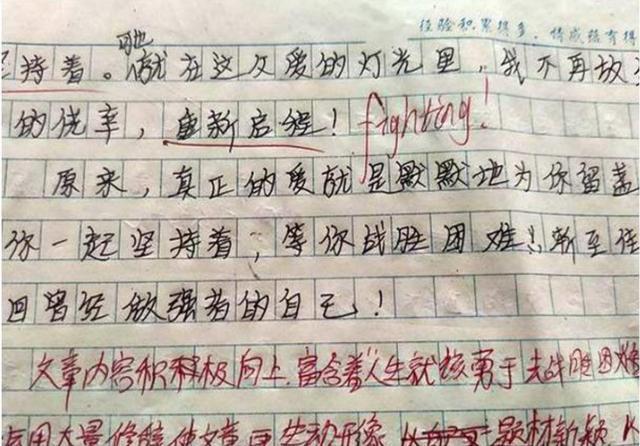 经验积累得多，
持着。哋就在这久爱的灯光里，我不再放
的侥幸，重新启程！ fighting！
原来，真正的爱就是默默地为你留盏
你一起坚持着，等你战胜困难！
回曾经敢强着的自己！
文章内容积极向上，富含着"人生就该勇于去战胜困难
用大量修辞使文章更生动形像，题材新颖